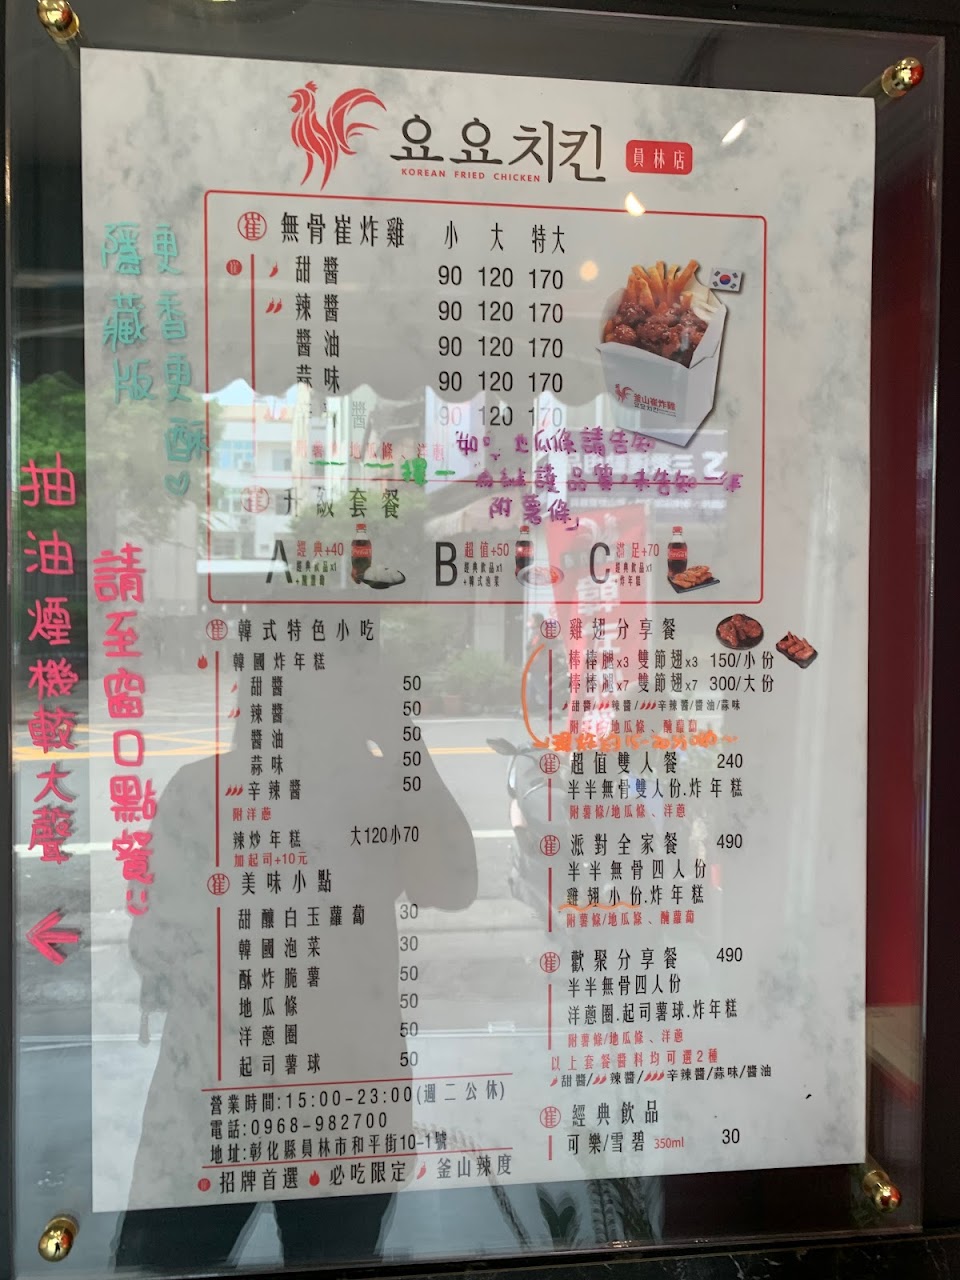 요요치킨 員林店
KOREAN FRIED CHICKEN
崔 無骨崔炸雞 小 大 特大
甜醬 90 120 170
辣醬 90 120 170
醬油 90 120 170
蒜味 90 120 170
醬 90 120 170
地瓜條、洋蔥
擇一
地瓜條請告知
品質,未告知一律
附薯條」
釜山崔炸雞
崔 升級套餐
A 經典+40
經典飲品x1
B 超值+50
經典飲品x1
+韓式泡菜
C 滿足+70
經典飲品x1
+炸年糕
崔 韓式特色小吃
韓國炸年糕
甜醬 50
辣醬 50
醬油 50
蒜味 50
辛辣醬 50
附洋蔥
辣炒年糕 大120小70
加起司+10元
崔 美味小點
甜釀白玉蘿蔔 30
韓國泡菜 30
酥炸脆薯 50
地瓜條 50
洋蔥圈 50
起司薯球 50
營業時間:15:00-23:00(週二公休)
電話:0968-982700
地址:彰化縣員林市和平街10-1號
招牌首選 必吃限定 釜山辣度
崔 雞翅分享餐
棒棒腿x3 雙節翅x3 150/小份
棒棒腿x7 雙節翅x7 300/大份
甜醬/辣醬/辛辣醬/醬油/蒜味
附薯條/地瓜條、醃蘿蔔
崔 超值雙人餐 240
半半無骨雙人份.炸年糕
附薯條/地瓜條、洋蔥
崔 派對全家餐 490
半半無骨四人份
雞翅小份.炸年糕
附薯條/地瓜條、醃蘿蔔
崔 歡聚分享餐 490
半半無骨四人份
洋蔥圈.起司薯球.炸年糕
附薯條/地瓜條、洋蔥
以上套餐醬料均可選2種
甜醬/辣醬/辛辣醬/蒜味/醬油
崔 經典飲品
可樂/雪碧 350ml 30
更香更酥♡
隱藏版
請至窗口點餐
抽油煙機較大聲
←